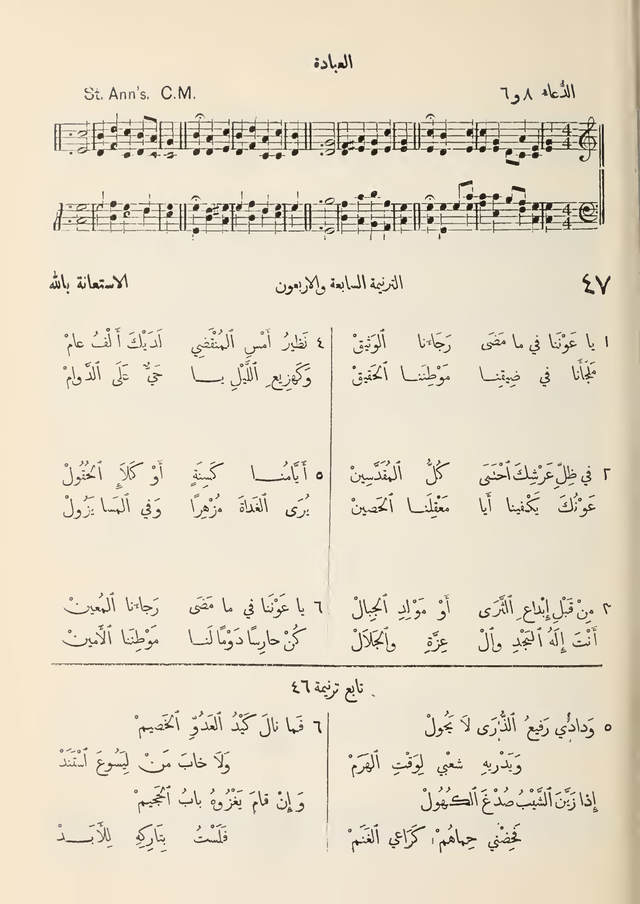 العبادة
St. Ann's. C.M.
الدُّعاء ٨ و٦
٤٧ الترنيمة السابعة والاربعون الاستعانة بالله
١ يا عَوْنَنا في ما مَضَى رَجَاءَنا الوَثِيقْ
مَلْجَأَنا في ضِيقِنا مَوْطِنَنا الحَقيقْ
٢ في ظِلِّ عَرْشِكَ احْتَمَى كُلُّ المُقَدَّسِينْ
عَوْنُكَ يَكْفينا أَيا مَعْقِلَنا الحَصينْ
٣ مِنْ قَبْلِ إِبْداعِ الثَّرَى أَوْ مَوْلِدِ الجِبالْ
أَنْتَ إِلَهُ المَجْدِ وَالْ عِزَّةِ والجَلالْ
٤ نَظيرُ أَمْسِ المُنْقَضِي لَدَيْكَ أَلْفُ عامْ
وَكَهَزيعِ اللَّيْلِ يا حَيُّ عَلَى الدَّوامْ
٥ أَيَّامُنا كَسِنَةٍ أَوْ كَلَإِ الحُقُولْ
يُرَى الغَداةَ مُزْهِرًا وَفي المَسا يَزُولْ
٦ يا عَوْنَنا في ما مَضَى رَجاءَنا المُعينْ
كُنْ حارِسًا دَوْمًا لَنا مَوْطِنَنا الأَمينْ
تابع ترنيمة ٤٦
٥ وَدادُي رَفيعُ الذُّرَى لا يَحُولْ
وَيَدْرِيهِ شَعْبي لِوَقْتِ الهَرَمْ
إِذا زَيَّنَ الشَّيْبُ صُدْغَ الكُهُولْ
فَحِضْني حِماهُمْ كَراعي الغَنَمْ
٦ فَما نالَ كَيْدُ العَدُوِّ الخَصيمْ
وَلَا خابَ مَنْ لِيَسُوعَ اسْتَنَدْ
وَإِنْ قامَ يَغْزُوهُ بابُ الجَحيمْ
فَلَسْتُ بِتارِكِهِ لِلأَبَدْ